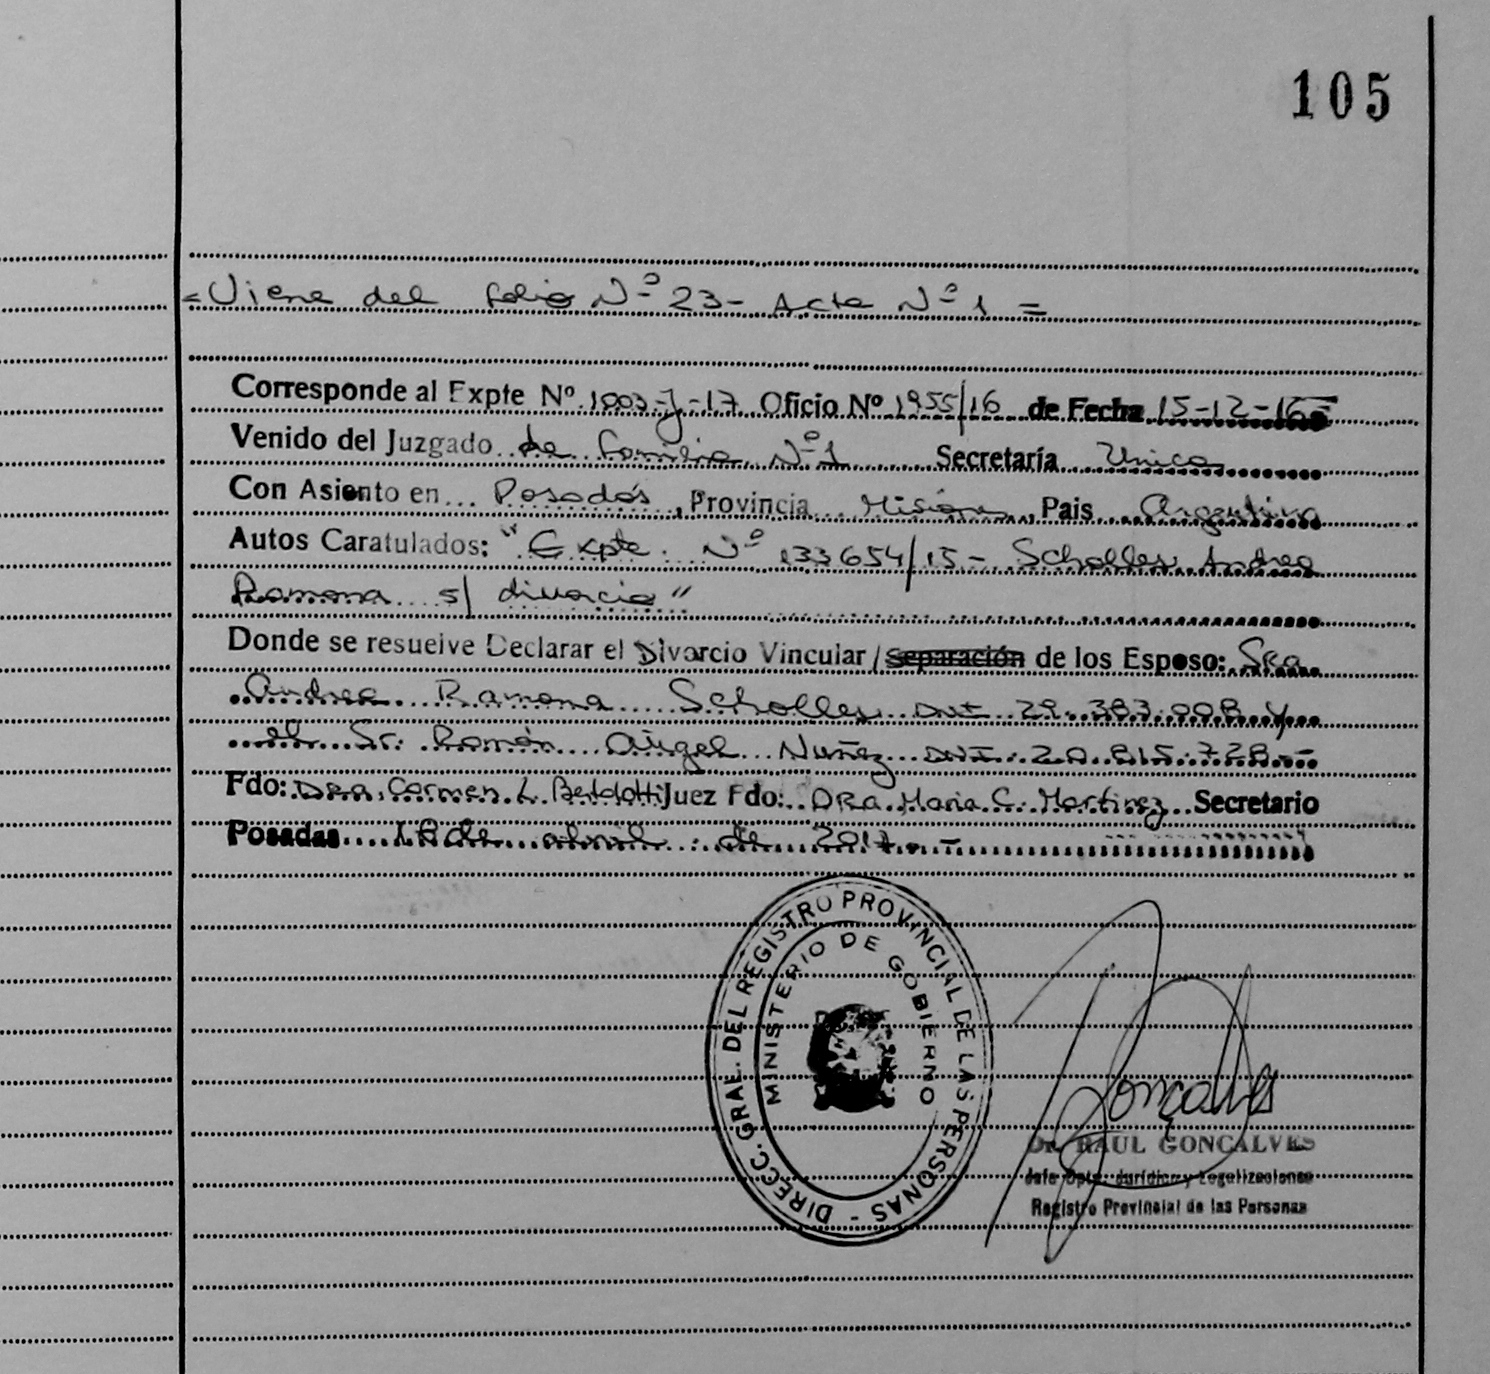 105
= Viene del folio Nº 23 - Acta Nº 1 =
Corresponde al Expte Nº 1003-J-17 Oficio Nº 1955/16 de Fecha 15-12-16
Venido del Juzgado de Familia Nº 1 Secretaría Unica
Con Asiento en Posadas, Provincia Misiones, Pais Argentina
Autos Caratulados: "Expte. Nº 133654/15 - Scholler Andrea
Ramona s/ divorcio"
Donde se resuelve Declarar el Divorcio Vincular / Separación de los Esposo: Sra.
Andrea Ramona Scholler DNI 29.383.008 y
el Sr. Ramón Angel Nuñez DNI 20.815.728.-
Fdo: Dra. Carmen L. Bertolotti Juez Fdo: DRa. Maria C. Martinez Secretario
Posadas de abril de 2017.-
DIRECC. GRAL. DEL REGISTRO PROVINCIAL DE LAS PERSONAS -
MINISTERIO DE GOBIERNO
Gonçalves
Dr. RAUL GONCALVES
Jefe Dpto. Jurídico y Legalizaciones
Registro Provincial de las Personas